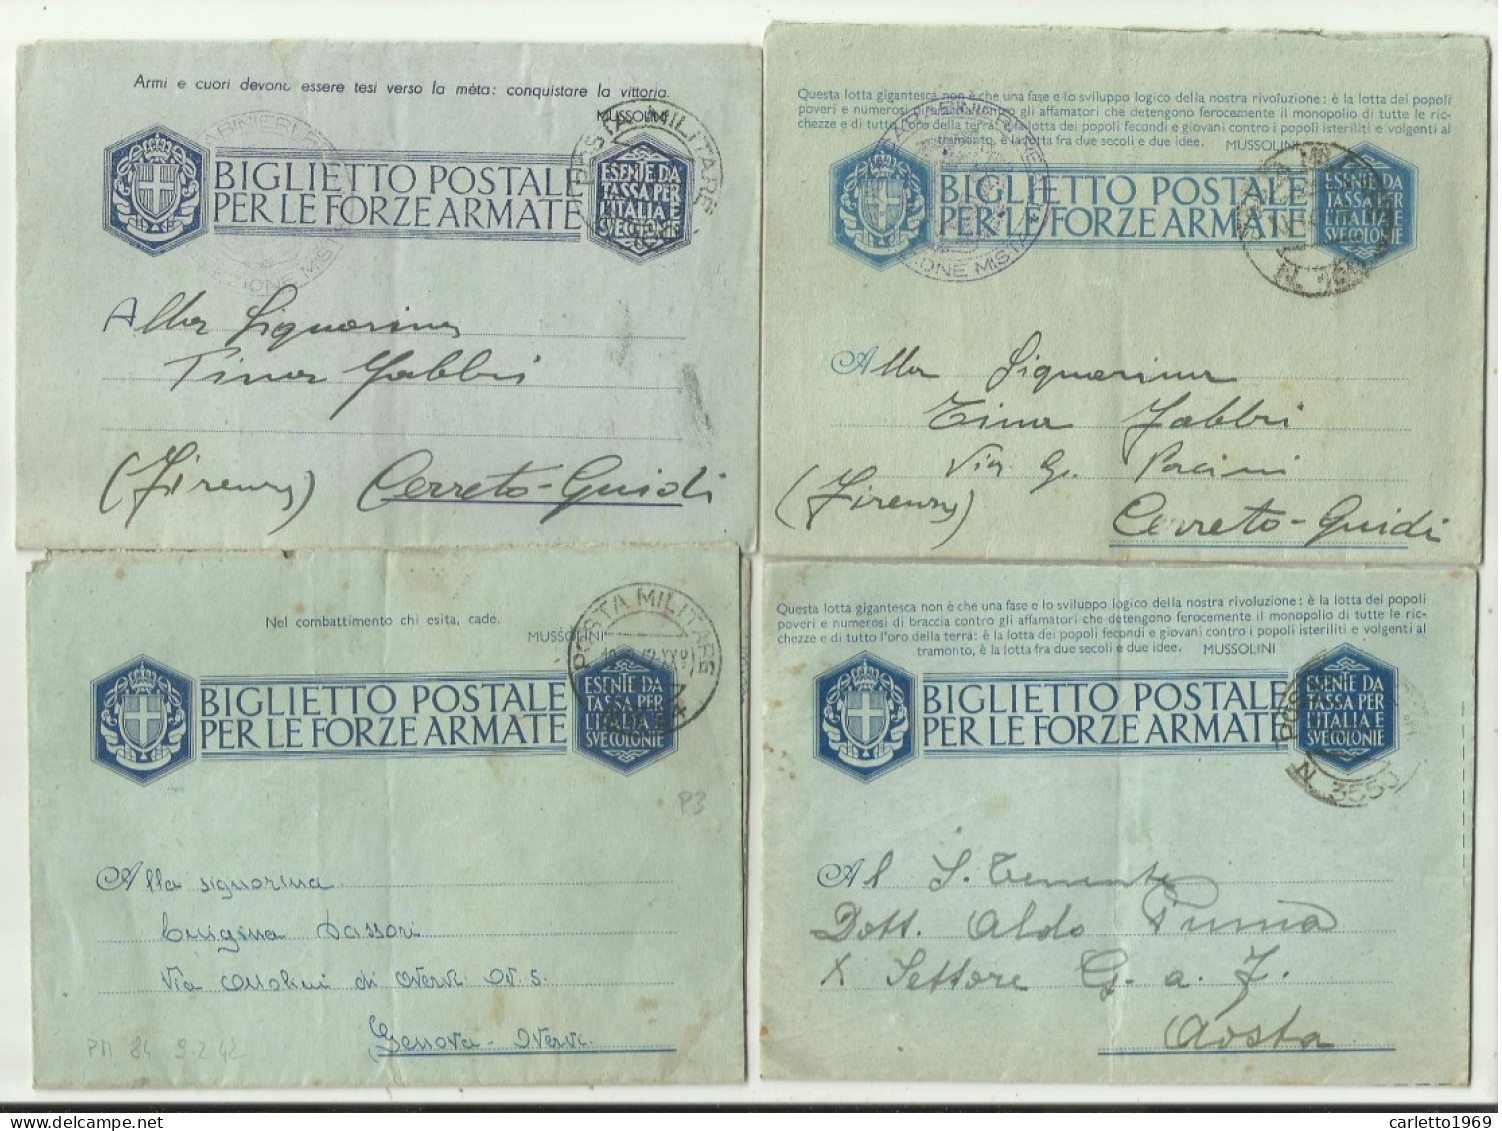 Armi e cuori devono essere tesi verso la mèta: conquistare la vittoria.
MUSSOLINI
BIGLIETTO POSTALE
PER LE FORZE ARMATE
ESENTE DA
TASSA PER
L'ITALIA E
SVE COLONIE
POSTA MILITARE
Alla Signorina
Tina Gabbri
(Firenze) Cerreto-Guidi
Questa lotta gigantesca non è che una fase e lo sviluppo logico della nostra rivoluzione: è la lotta dei popoli
poveri e numerosi di braccia contro gli affamatori che detengono ferocemente il monopolio di tutte le ric-
chezze e di tutto l'oro della terra: è la lotta dei popoli fecondi e giovani contro i popoli isteriliti e volgenti al
tramonto, è la lotta fra due secoli e due idee. MUSSOLINI
BIGLIETTO POSTALE
PER LE FORZE ARMATE
ESENTE DA
TASSA PER
L'ITALIA E
SVE COLONIE
Alla Signorina
Tina Gabbri
Via G. Pacini
(Firenze) Cerreto-Guidi
Nel combattimento chi esita, cade.
MUSSOLINI
POSTA MILITARE
BIGLIETTO POSTALE
PER LE FORZE ARMATE
ESENTE DA
TASSA PER
L'ITALIA E
SVE COLONIE
P3
Alla signorina
Luigina Sassori
Via
Genova - Nervi
PM 84 9.2.42
Questa lotta gigantesca non è che una fase e lo sviluppo logico della nostra rivoluzione: è la lotta dei popoli
poveri e numerosi di braccia contro gli affamatori che detengono ferocemente il monopolio di tutte le ric-
chezze e di tutto l'oro della terra: è la lotta dei popoli fecondi e giovani contro i popoli isteriliti e volgenti al
tramonto, è la lotta fra due secoli e due idee. MUSSOLINI
BIGLIETTO POSTALE
PER LE FORZE ARMATE
ESENTE DA
TASSA PER
L'ITALIA E
SVE COLONIE
N. 3550
Al S. Tenente
Dott. Aldo Puma
X Settore G. a. F.
Aosta
delcampe.net
carletto1969